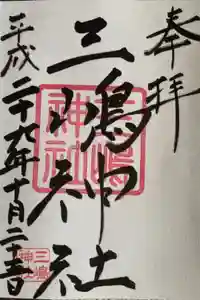 奉拝
三嶋神社
平成二十九年十月二十三日
三嶋神社
三嶋神社